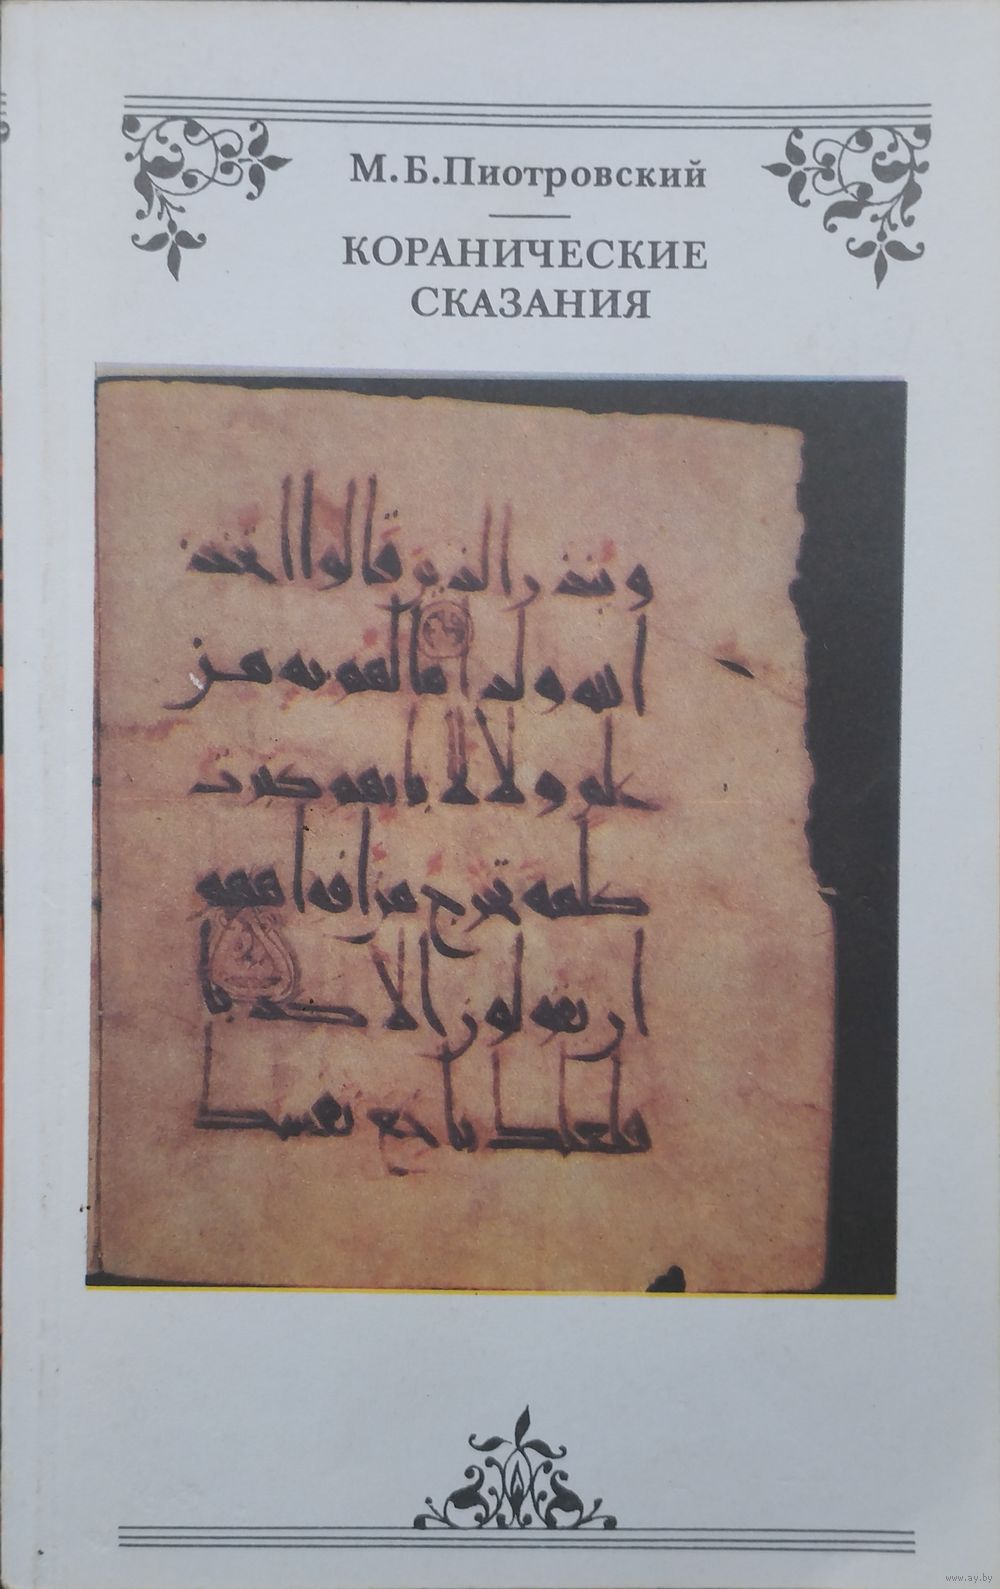 М.Б.Пиотровский
КОРАНИЧЕСКИЕ
СКАЗАНИЯ
وينذر الذين قالوا اتخذ
الله ولدا ما لهم به من
علم ولا لابائهم كبرت
كلمة تخرج من افوههم
ان يقولون الا كذبا
فلعلك باخع نفسك
www.ay.by